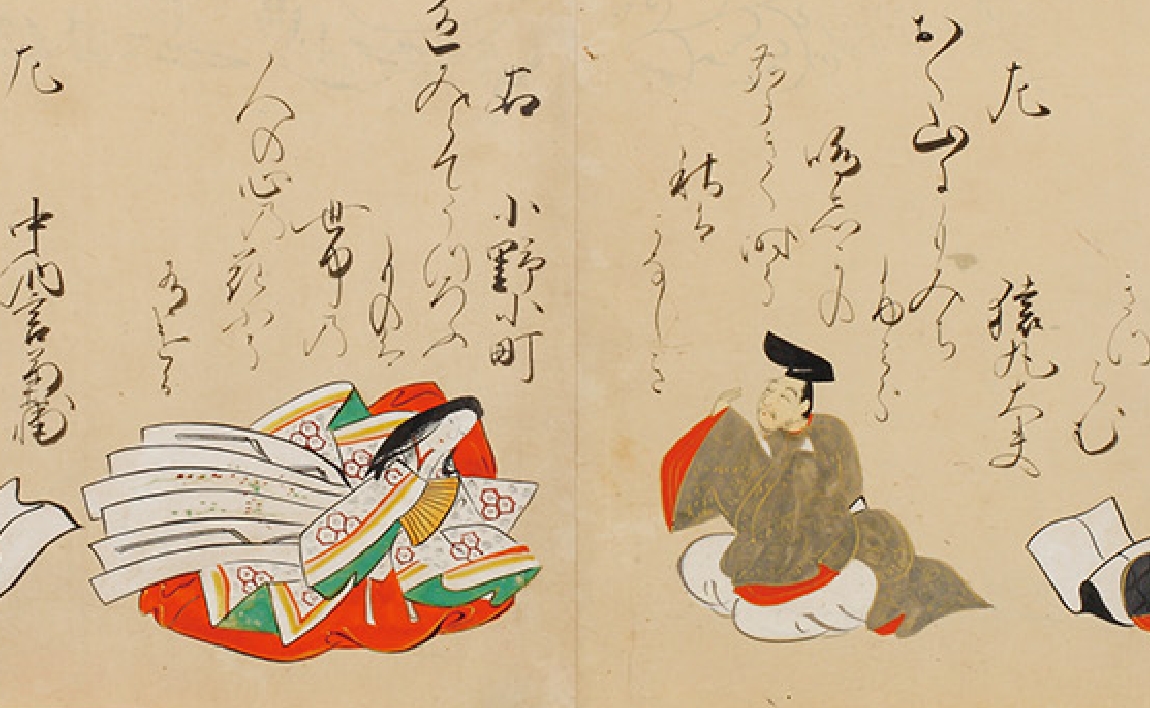 左　猿丸大夫
おく山にもみち
ふみわけ
鳴しかの
聲きく時そ
秋は
かなしき
右　小野小町
色みえてうつろふ
ものは
世中の
人の心の花にそ
有ける
左　中納言兼輔